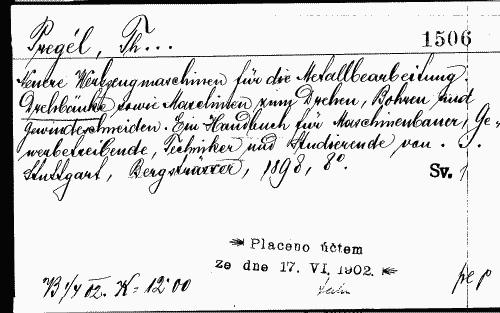 Pregél, Th...
1506
Neuere Werkzeugmaschinen für die Metallbearbeitung.
Drehbänke sowie Maschinen zum Drehen, Bohren und
Gewindeschneiden. Ein Handbuch für Maschinenbauer, Ge-
werbetreibende, Techniker und Studierende von . J.
Stuttgart, Bergsträsser, 1898, 8°.
Sv. 1
Placeno účtem
ze dne 17. VI. 1902.
02. K = 12·00